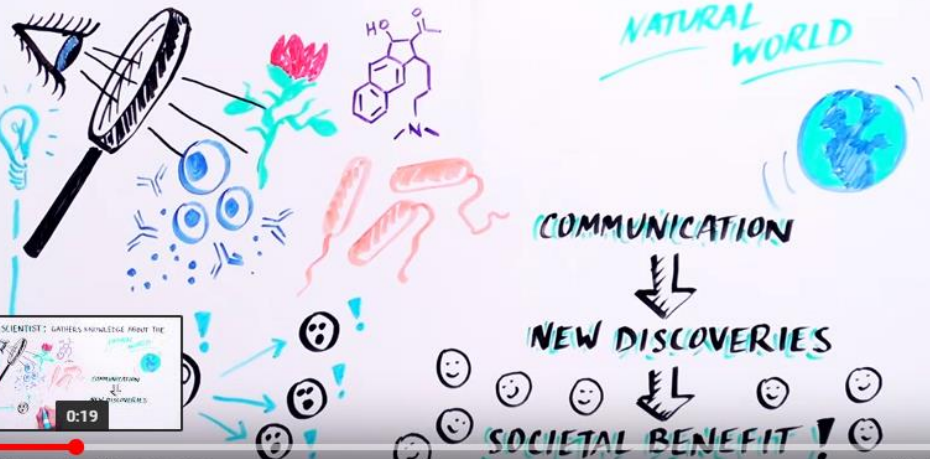 HO
O
N
NATURAL
WORLD
COMMUNICATION
NEW DISCOVERIES
SOCIETAL BENEFIT!
SCIENTIST: GATHERS KNOWLEDGE ABOUT THE
NATURAL
WORLD
COMMUNICATION
NEW DISCOVERIES
0:19